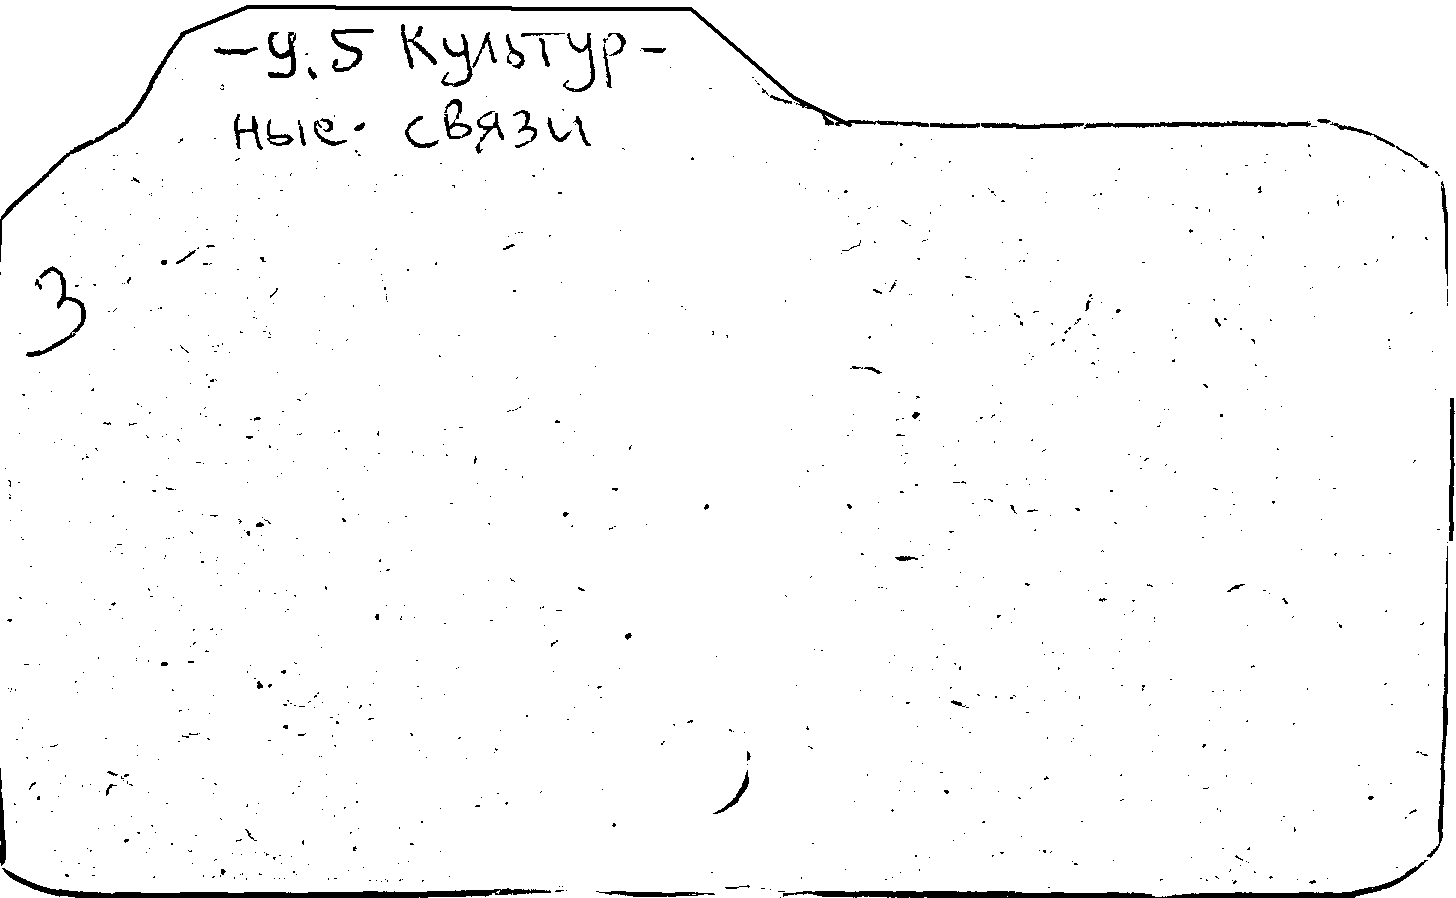 -У.5 Культур-
ные связи
3